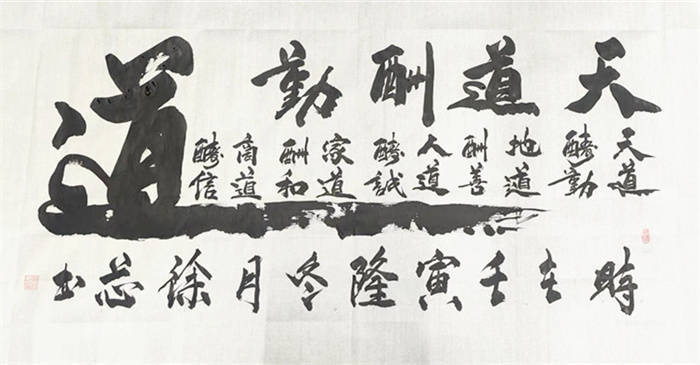 天道酬勤
道
天道
酬勤
地道
酬善
人道
酬誠
家道
酬和
商道
酬信
時在壬寅隆冬月徐芯书